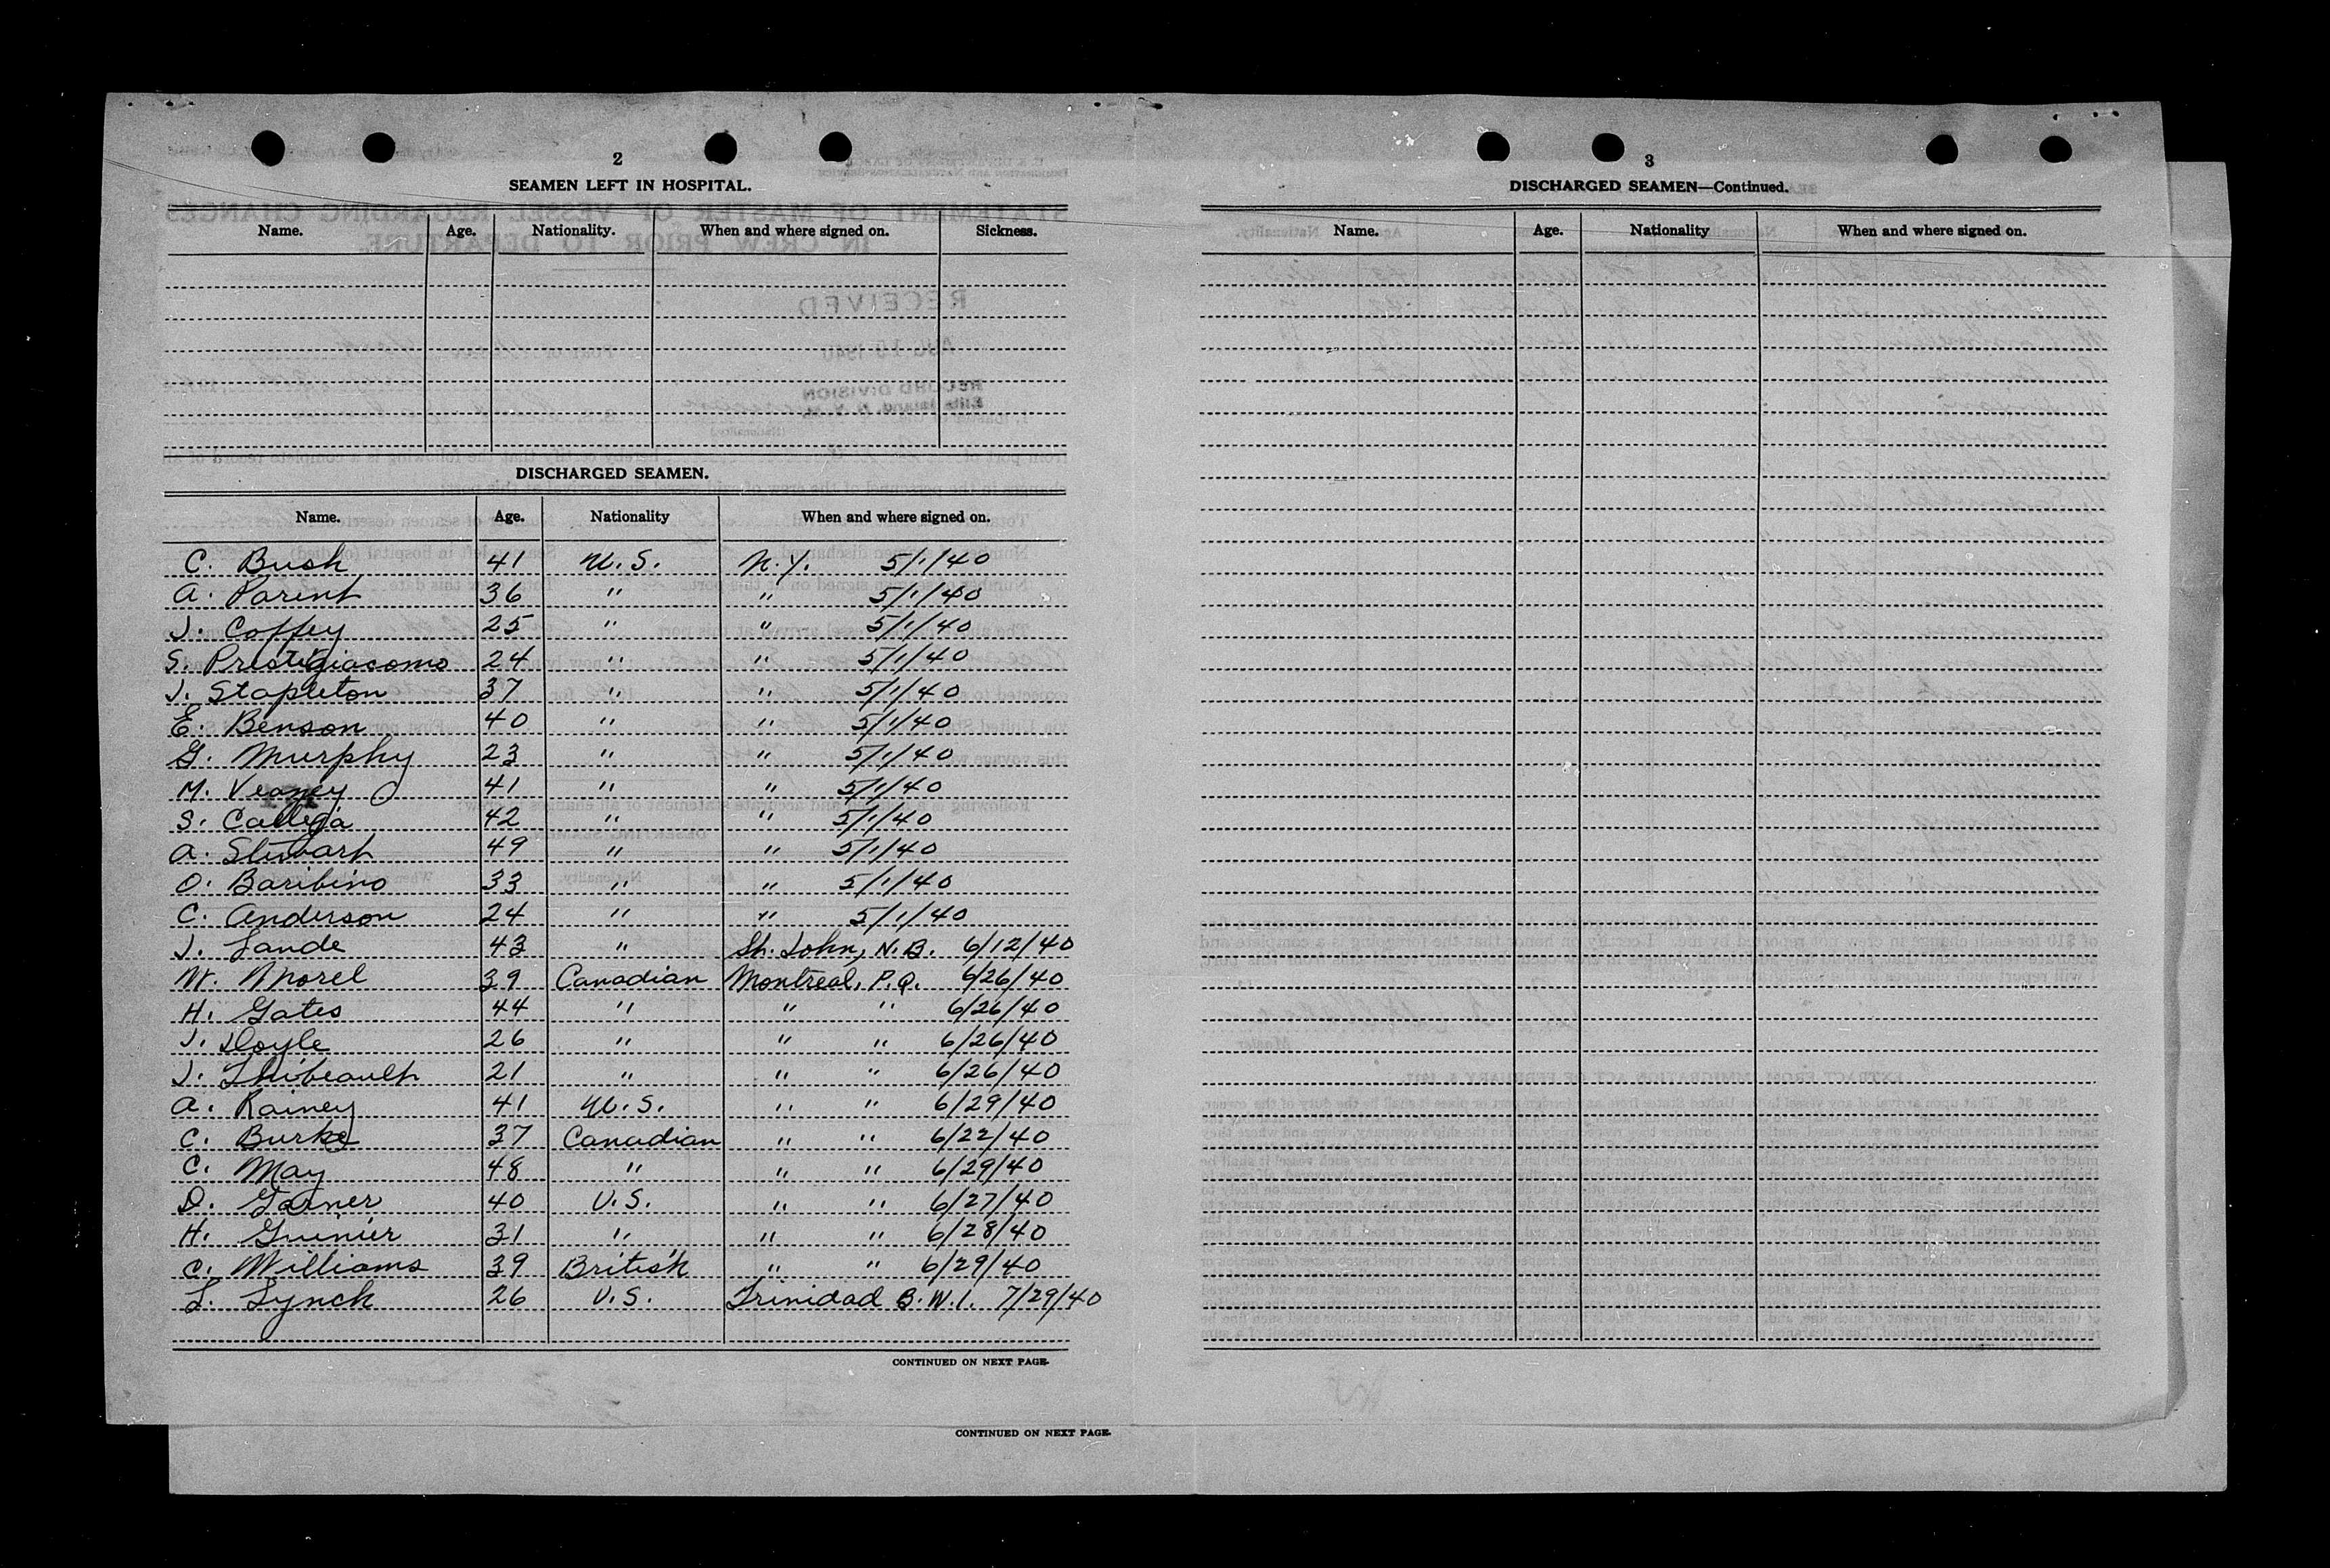 2
SEAMEN LEFT IN HOSPITAL.
Name. Age. Nationality. When and where signed on. Sickness.
DISCHARGED SEAMEN.
Name. Age. Nationality When and where signed on.
C. Bush 41 U.S. N.Y. 5/1/40
A. Parent 36 " " 5/1/40
J. Coffey 25 " " 5/1/40
S. Prestigiacomo 24 " " 5/1/40
J. Stapleton 37 " " 5/1/40
E. Benson 40 " " 5/1/40
G. Murphy 23 " " 5/1/40
M. Veaney 41 " " 5/1/40
S. Calleja 42 " " 5/1/40
A. Stewart 49 " " 5/1/40
O. Baribino 33 " " 5/1/40
C. Anderson 24 " " 5/1/40
J. Lande 43 " St. John, N.B. 6/12/40
W. Morel 39 Canadian Montreal, P.Q. 6/26/40
H. Gates 44 " " " 6/26/40
J. Doyle 26 " " " 6/26/40
J. Thibeault 21 " " " 6/26/40
A. Rainey 41 U.S. " " 6/29/40
C. Burke 37 Canadian " " 6/22/40
C. May 48 " " " 6/29/40
D. Garner 40 U.S. " " 6/27/40
H. Grenier 31 " " " 6/28/40
C. Williams 39 British " " 6/29/40
L. Lynch 26 U.S. Trinidad B.W.I. 7/29/40
CONTINUED ON NEXT PAGE.
CONTINUED ON NEXT PAGE.
3
DISCHARGED SEAMEN—Continued.
Name. Age. Nationality When and where signed on.